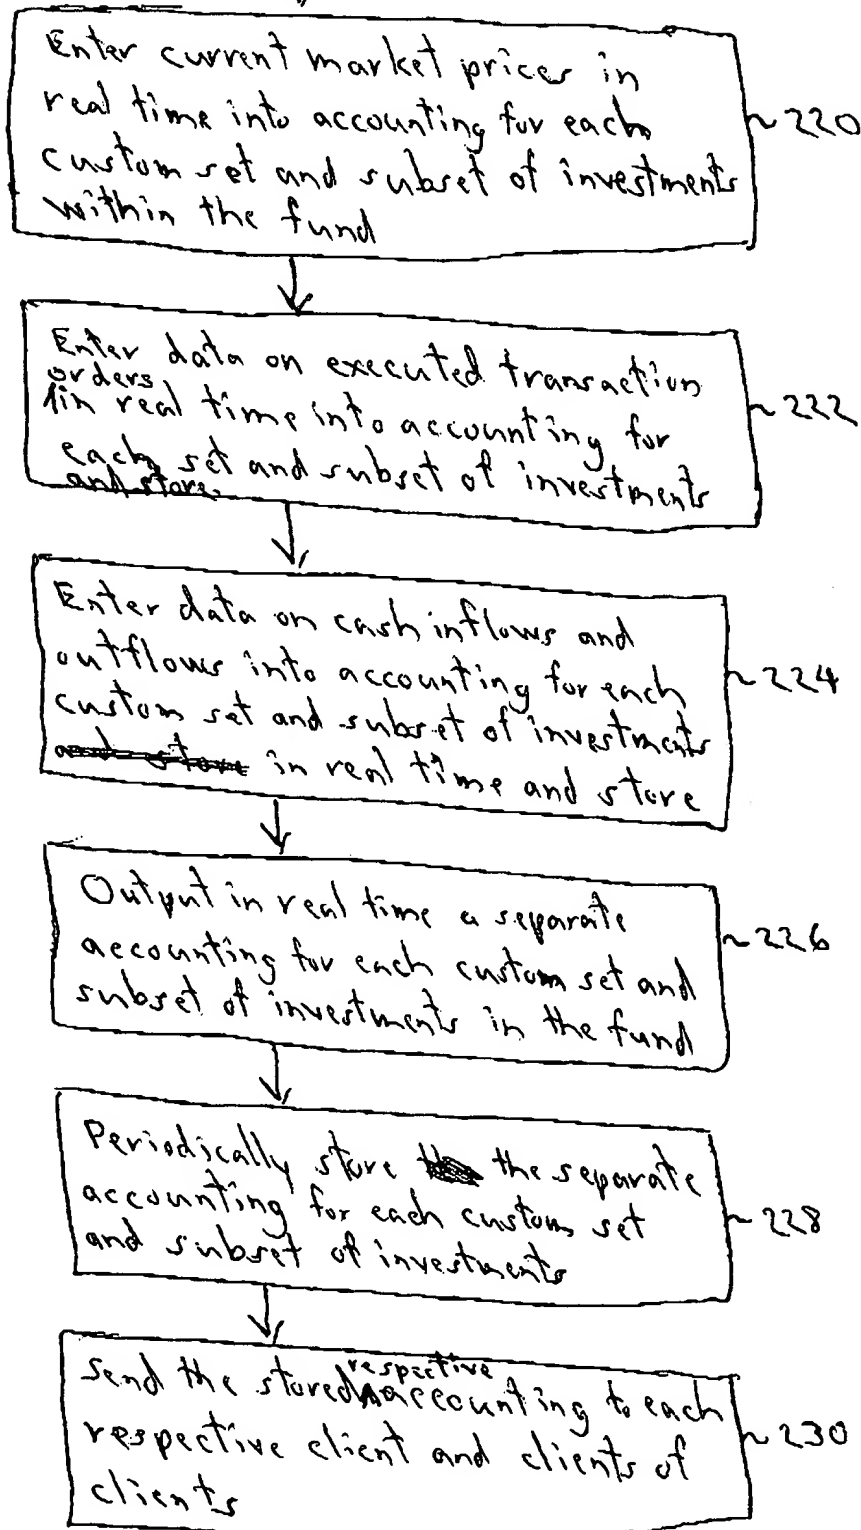 Enter current market prices in
real time into accounting for each
custom set and subset of investments
within the fund
~220
Enter data on executed transaction
orders
in real time into accounting for
each set and subset of investments
and store
~222
Enter data on cash inflows and
outflows into accounting for each
custom set and subset of investments
and store in real time and store
~224
Output in real time a separate
accounting for each custom set and
subset of investments in the fund
~226
Periodically store the separate
accounting for each custom set
and subset of investments
~228
respective
Send the stored accounting to each
respective client and clients of
clients
~230